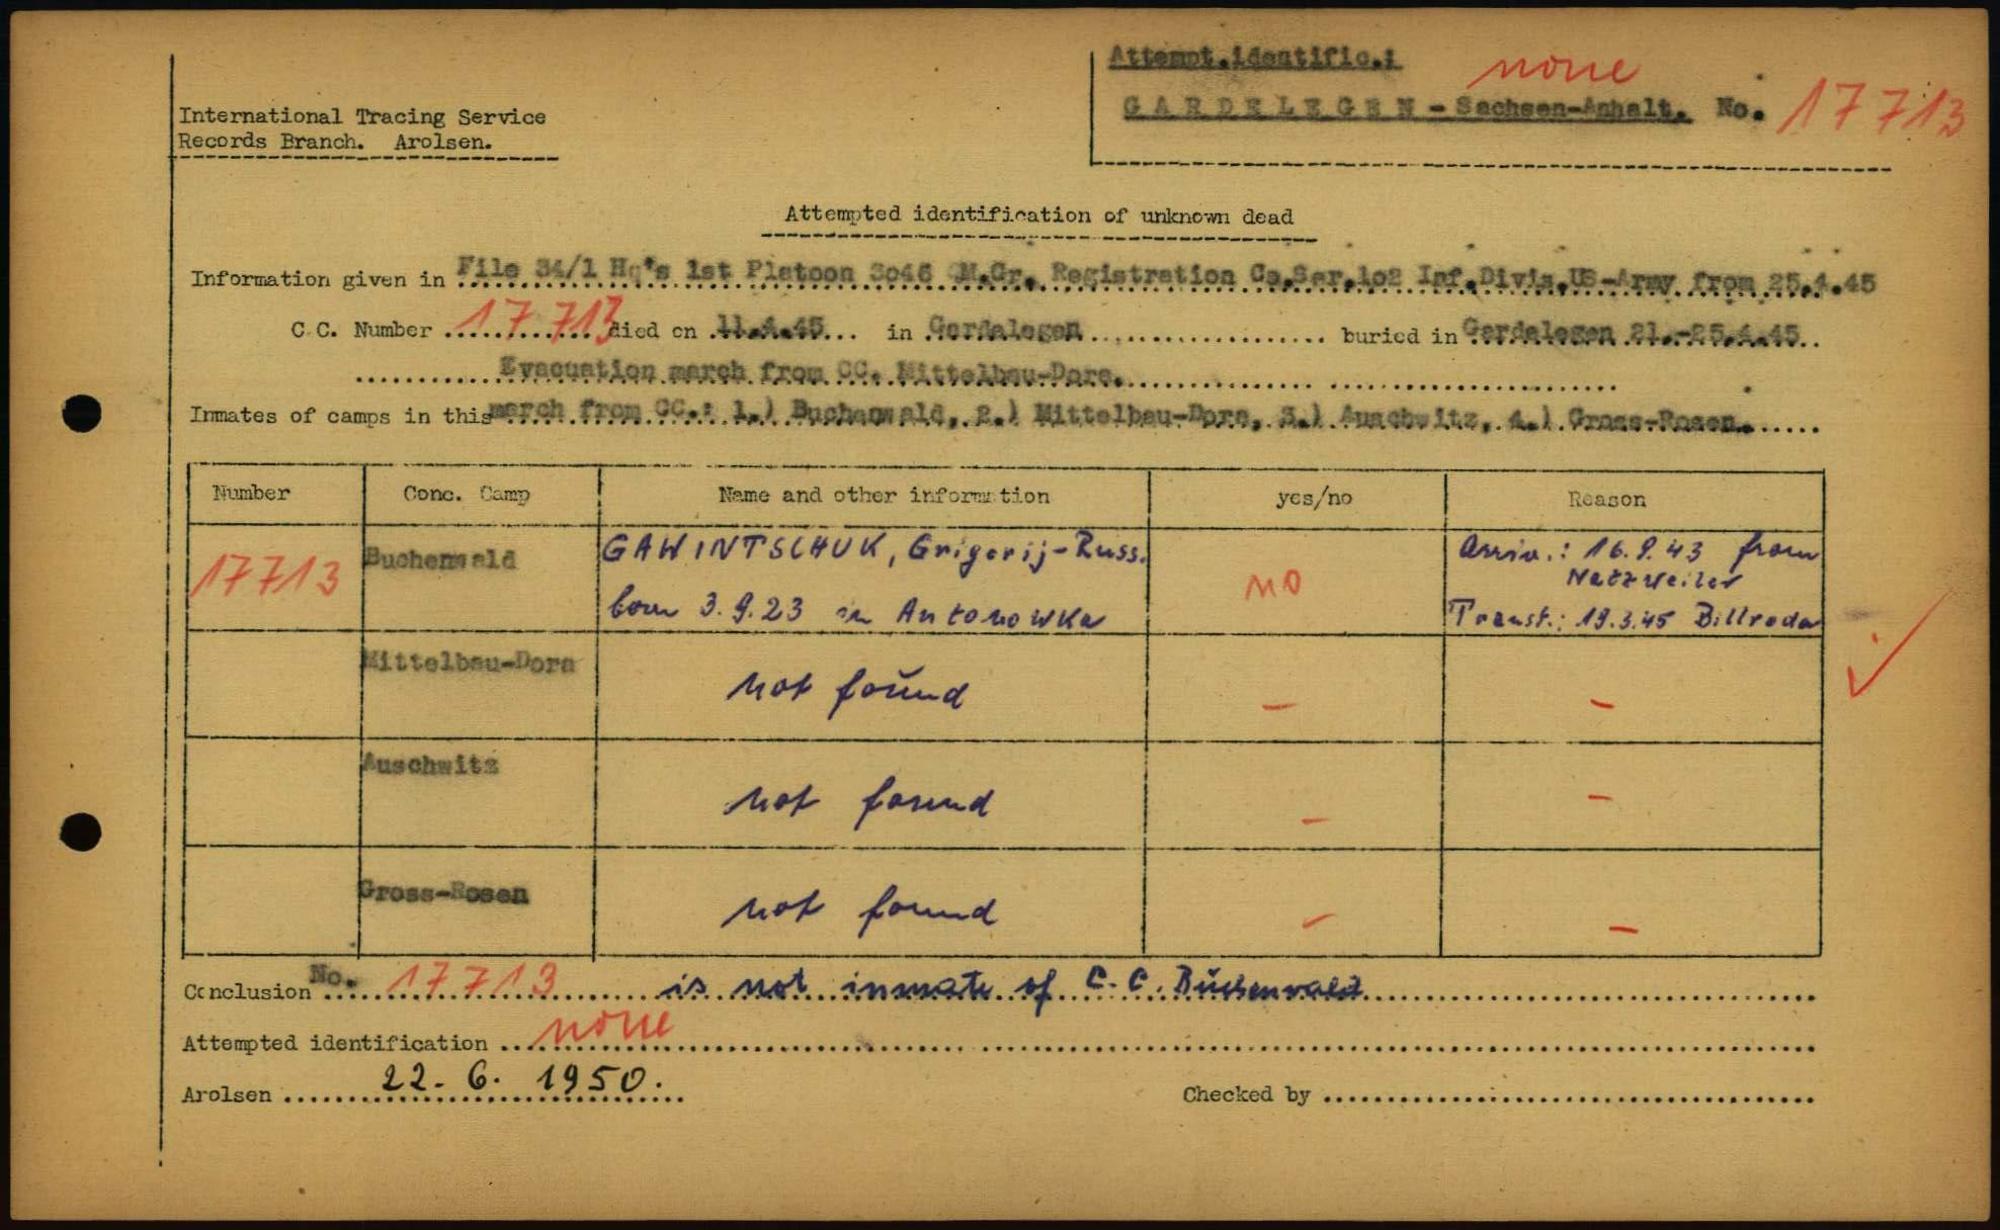 Attempt.identific.: none
International Tracing Service
Records Branch. Arolsen.
GARDELEGEN - Sachsen-Anhalt. No. 17713
Attempted identification of unknown dead
Information given in File 34/1 Hq's 1st Platoon 3o46 QM.Gr. Registration Co.Ser.1o2 Inf.Divis.US-Army from 25.4.45
C.C. Number 17 713 died on 11.4.45 in Gardelegen buried in Gardelegen 21.-25.4.45
Evacuation march from CC. Mittelbau-Dora.
Inmates of camps in this march from CC.: 1.) Buchenwald, 2.) Mittelbau-Dora, 3.) Auschwitz, 4.) Gross-Rosen.
Number Conc. Camp Name and other information yes/no Reason
17713 Buchenwald GAWINTSCHUK, Grigorij-Russ. no Arriv.: 16.9.43 from
Natzweiler
born 3.9.23 in Antonowka Transf.: 19.3.45 Billroda
Mittelbau-Dora not found – –
Auschwitz not found – –
Gross-Rosen not found – –
Conclusion No. 17713 is not inmate of C.C. Buchenwald
Attempted identification none
Arolsen 22. 6. 1950. Checked by